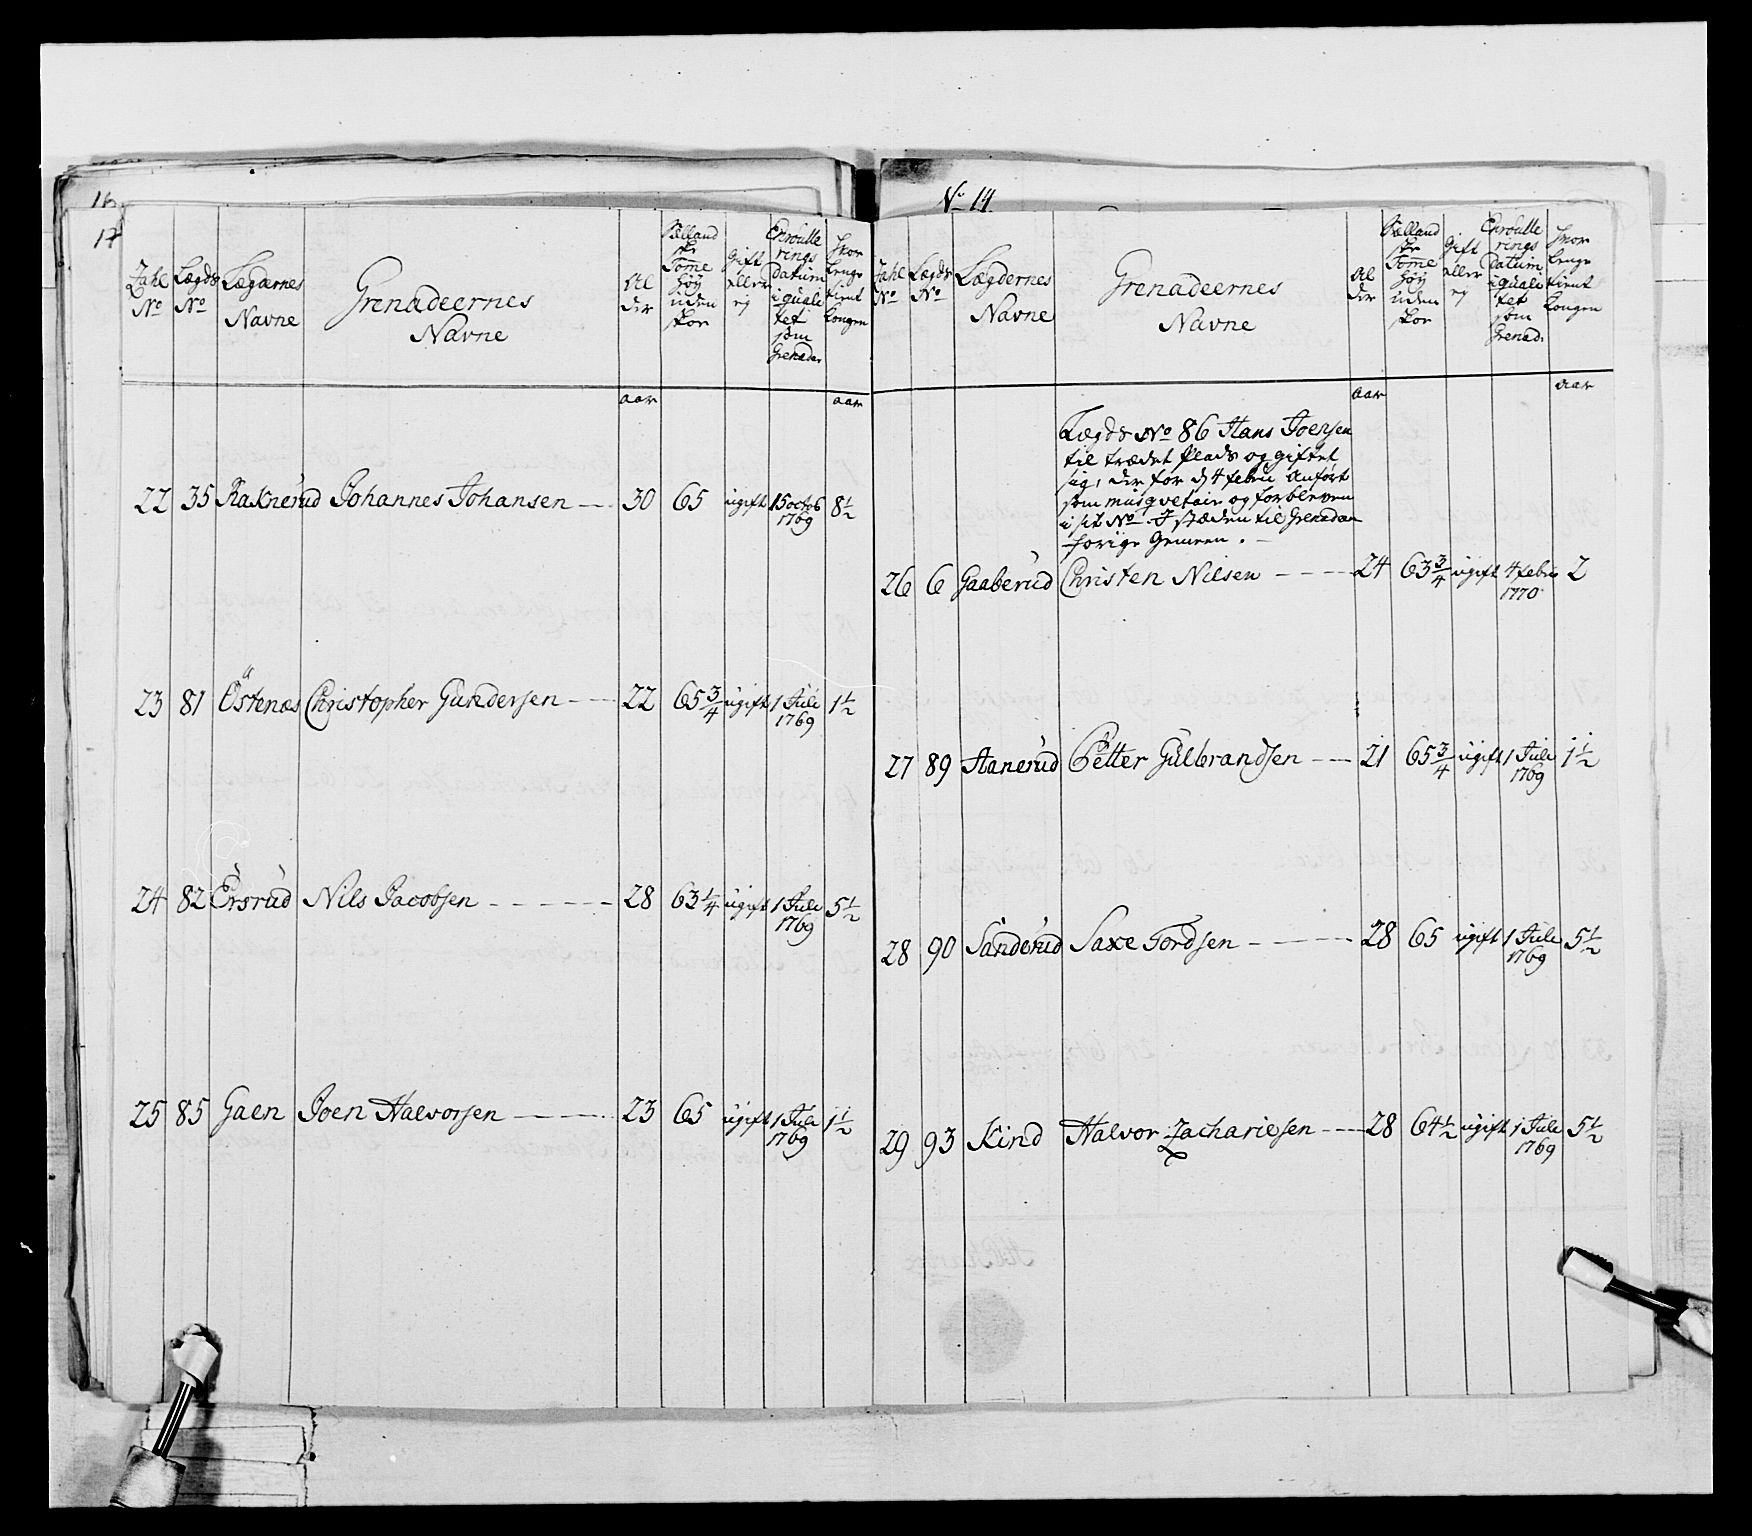 16
17
Zahl No
Lægds No
Lægdernes Navne
Grenadeernes Navne
Al der
Sælland ske Tome höÿ uden skoe
Gift eller ej
Enroulle rings datum i quali tet som Grenadr
hvor lenge tient Kongen
aar
aar
22 35 Raknerud Johannes Johansen 30 65 ugift 15 octob 1769 8½
23 81 Östenæs Christopher Gundersen 22 65¾ ugift 1 Juli 1769 1½
24 82 Ersrud Nils Jacobsen 28 63¼ ugift 1 Juli 1769 5½
25 85 Gaen Joen Halvorsen 23 65 ugift 1 Juli 1769 1½
No 14
Zahl No
Lægds No
Lægdernes Navne
Grenadeernes Navne
Al der
Sælland ske Tome höÿ uden skoe
Gift eller ej
Enroulle rings datum i quali tet som Grenadr
hvor lenge tient Kongen
aar
aar
Lægds No 86 Hans Joensen
til trædet Plads og giftet
sig, der for d 4 febru Anfört
som musqvetair og forbleven
i sit No I stæden til Grenadeer
forrige Gemeen.
26 6 Gaaberud Christen Nilsen 24 63¾ ugift 4 febru 1770 2
27 89 Hanerud Petter Gulbrandsen 21 65¾ ugift 1 Juli 1769 1½
28 90 Sanderud Saxe Tordsen 28 65 ugift 1 Juli 1769 5½
29 93 Kind Halvor Zachariesen 28 64½ ugift 1 Juli 1769 5½